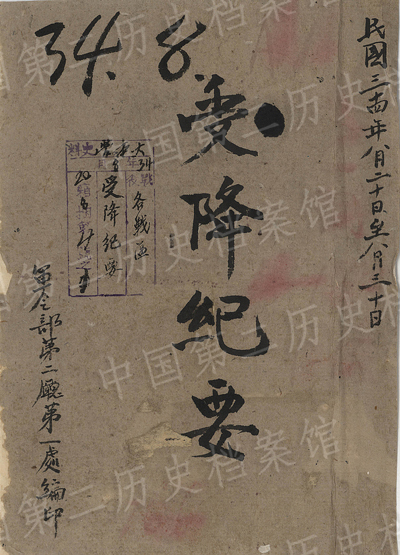 34. 8
民國三十四年八月二十日至八月三十日
受降紀要
各戰區
受降紀要
軍令部第二廳第一處編印
中国第二历史档案馆